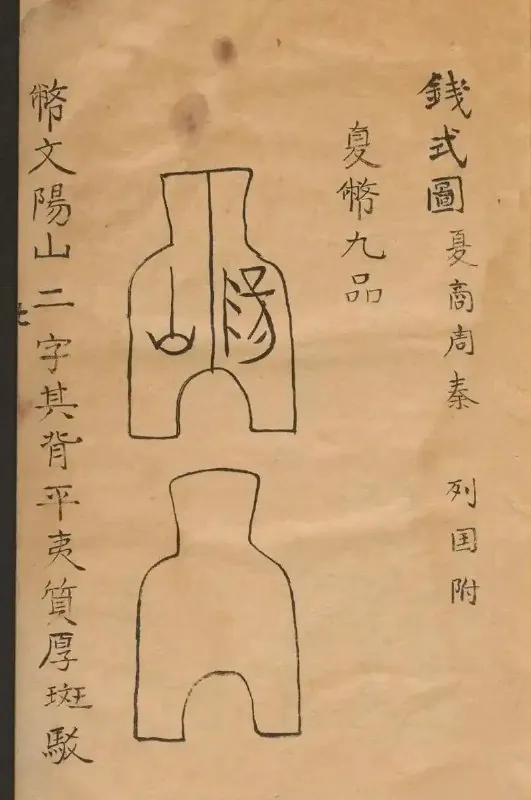 錢式圖 夏商周秦 列国附
夏幣九品
陽 山
幣文陽山二字其背平夷質厚斑駁